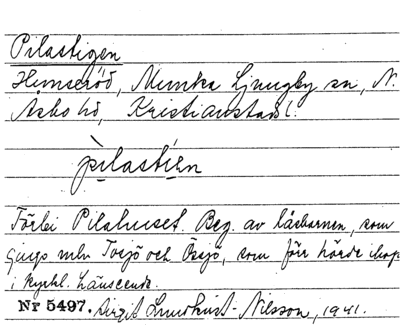 Pilastigen
Himseröd, Munka Ljungby sn, N.
Åsbo hd, Kristianstads l.
pìlastíen
Förbi Pilahuset. Beg. av läsbarnen, som
gingo mln Tossjö och Össjö, som förr hörde ihop
i kyrkl. hänseende.
Nr 5497. Birgit Lundkvist-Nilsson, 1941.